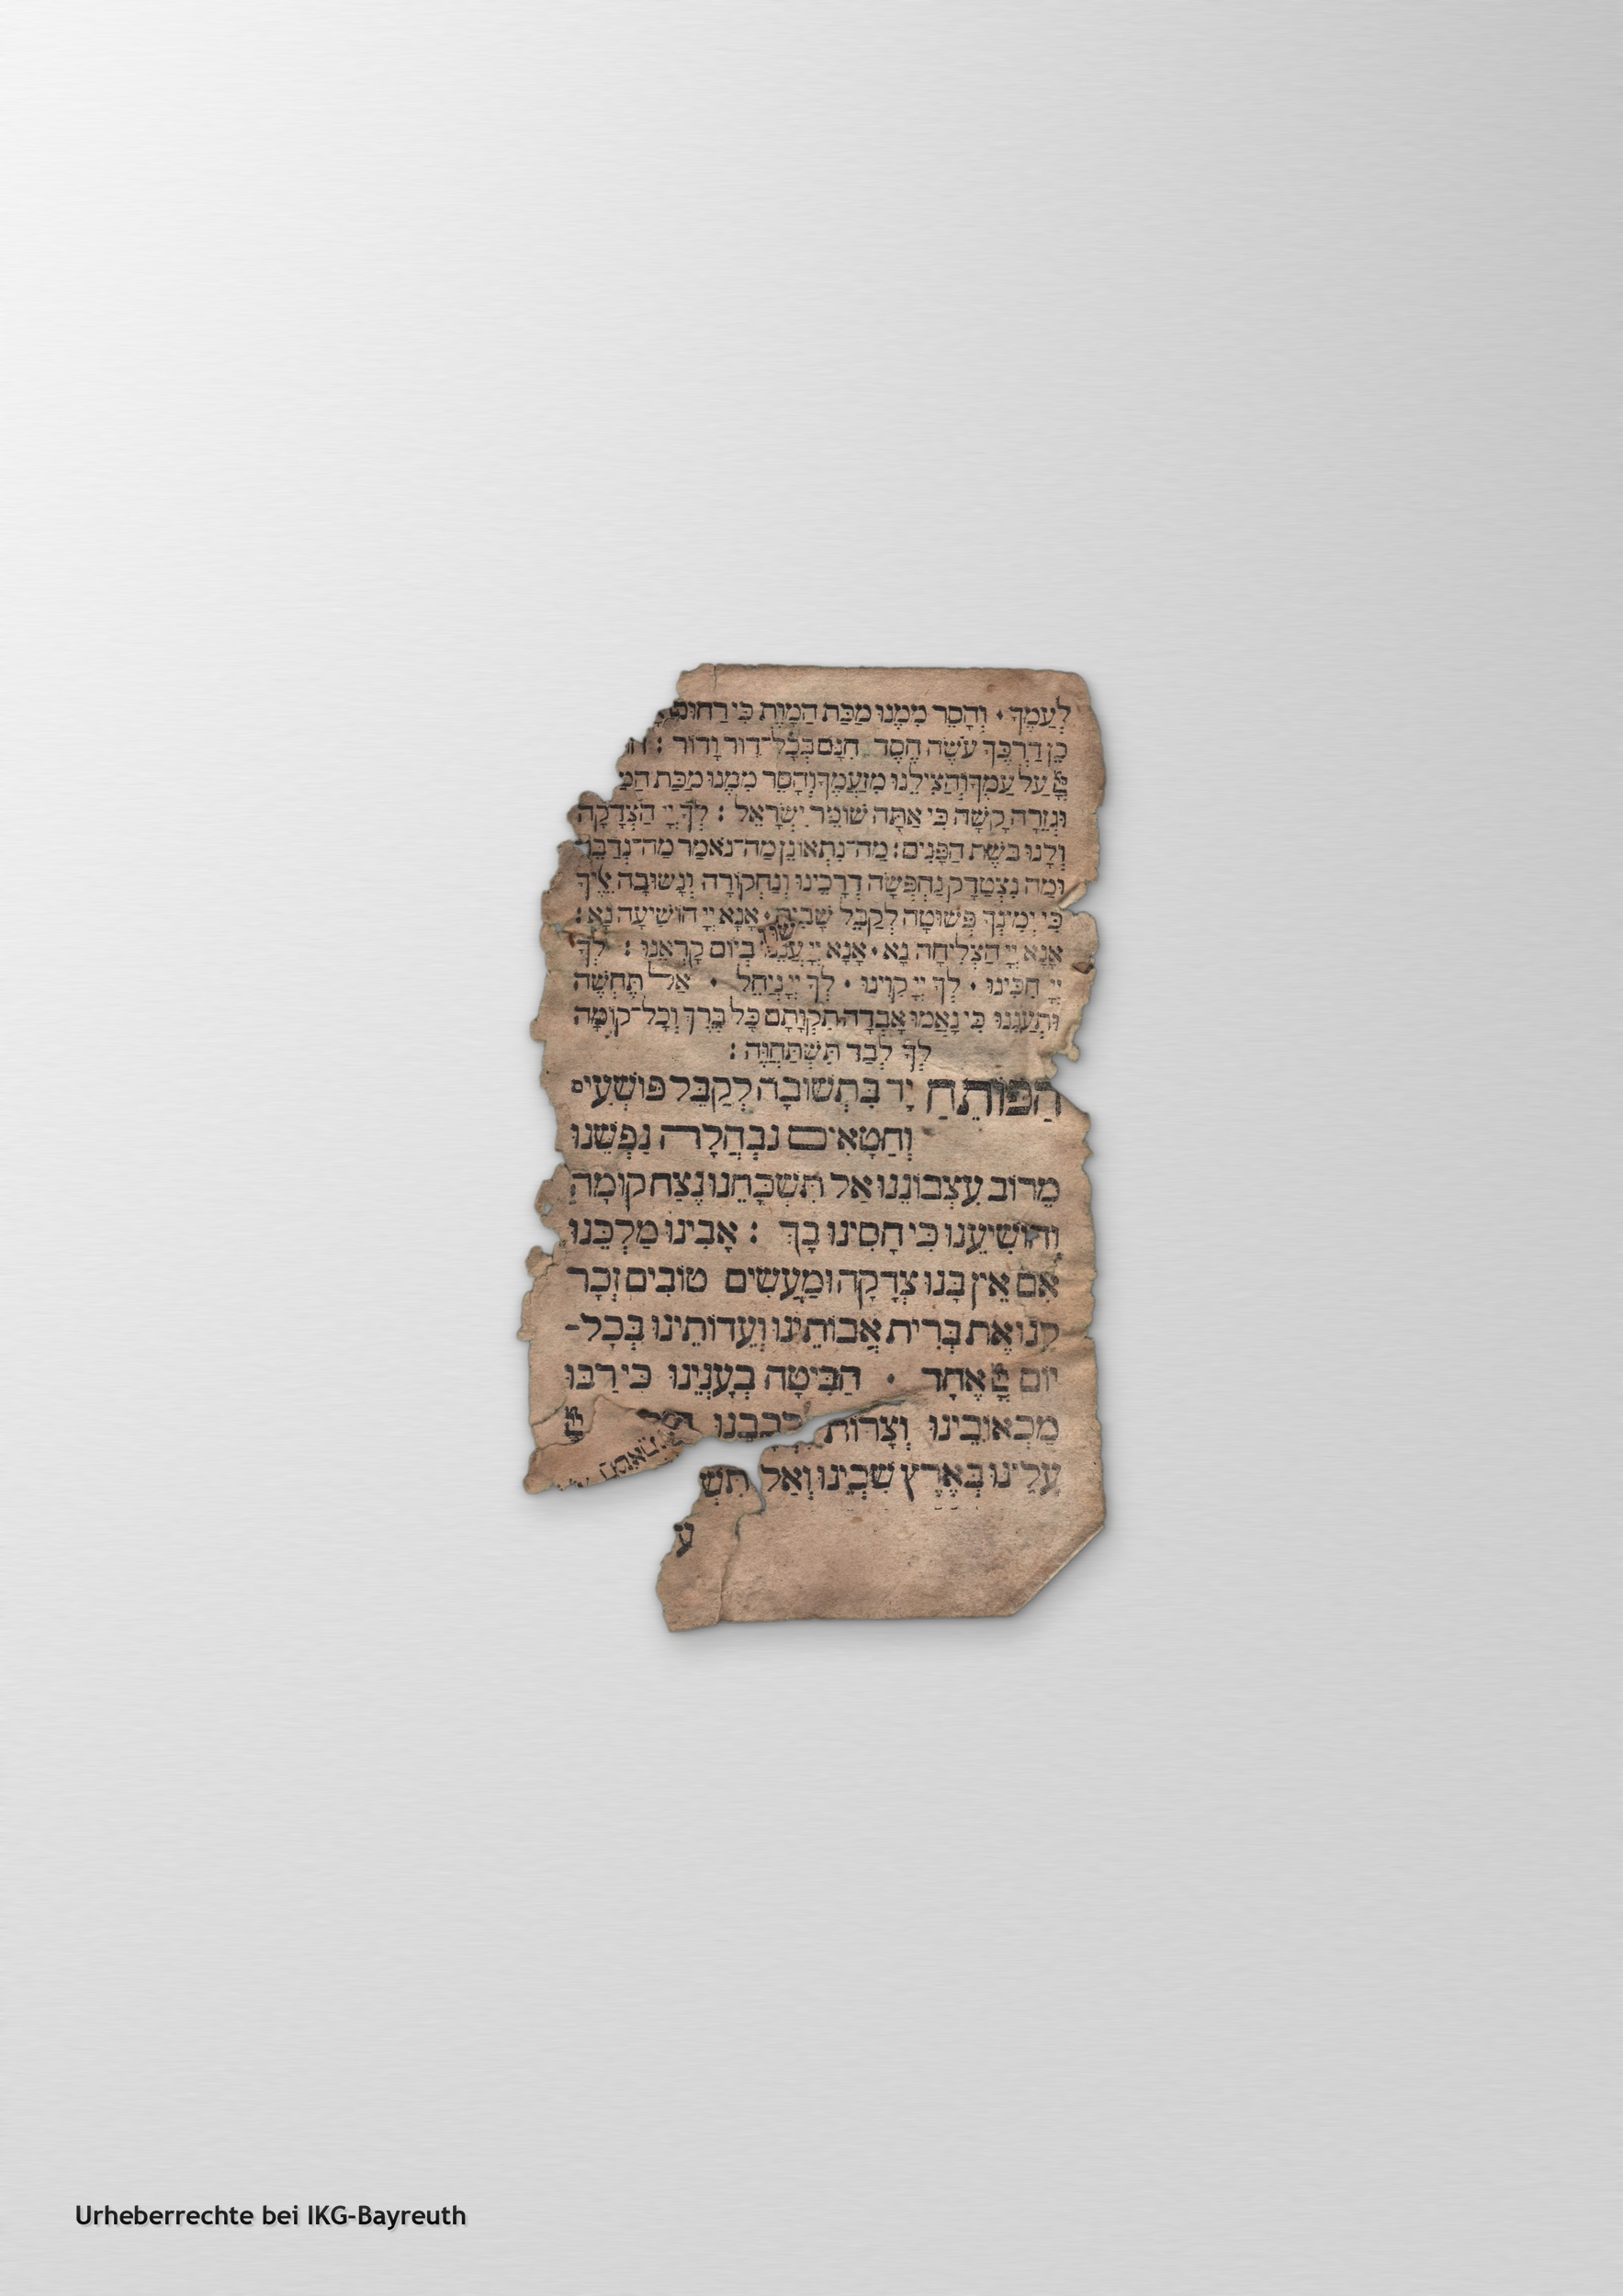 לְעַמֶּךָ · וְהָסֵר מִמֶּנּוּ מַכַּת הַמָּוֶת כִּי רַחוּם
כֵּן דַּרְכֶּךָ עֹשֶׂה חֶסֶד חִנָּם בְּכָל־דּוֹר וָדוֹר :
עַל עַמְּךָ וְהַצִּילֵנוּ מִזַּעְמֶךָ וְהָסֵר מִמֶּנּוּ מַכַּת הַמַּ
וּגְזֵרָה קָשָׁה כִּי אַתָּה שׁוֹמֵר יִשְׂרָאֵל : לְךָ יְיָ הַצְּדָקָה
וְלָנוּ בֹּשֶׁת הַפָּנִים : מַה־נִּתְאוֹנֵן מַה־נֹּאמַר מַה־נְּדַבֵּר
וּמַה נִּצְטַדָּק נַחְפְּשָׂה דְרָכֵינוּ וְנַחְקוֹרָה וְנָשׁוּבָה אֵלֶיךָ
כִּי יְמִינְךָ פְּשׁוּטָה לְקַבֵּל שָׁבִים · אָנָּא יְיָ הוֹשִׁיעָה נָּא :
אָנָּא יְיָ הַצְלִיחָה נָא · אָנָּא יְיָ עֲנֵנוּ בְיוֹם קָרְאֵנוּ : לְךָ
יְיָ חִכִּינוּ · לְךָ יְיָ קִוִּינוּ · לְךָ יְיָ נְיַחֵל · אַל תֶּחֱשֶׁה
וּתְעַנֵּנוּ כִּי נָאֲמוּ אָבְדָה תִקְוָתָם כָּל בֶּרֶךְ וְכָל־קוֹמָה
לְךָ לְבַד תִּשְׁתַּחֲוֶה :
הַפּוֹתֵחַ יָד בִּתְשׁוּבָה לְקַבֵּל פּוֹשְׁעִים
וְחַטָּאִים נִבְהֲלָה נַפְשֵׁנוּ
מֵרוֹב עִצְּבוֹנֵנוּ אַל תִּשְׁכָּחֵנוּ נֶצַח קוּמָה
וְהוֹשִׁיעֵנוּ כִּי חָסִינוּ בָךְ : אָבִינוּ מַלְכֵּנוּ
אִם אֵין בָּנוּ צְדָקָה וּמַעֲשִׂים טוֹבִים זְכָר
לָנוּ אֶת בְּרִית אֲבוֹתֵינוּ וְעֵדוֹתֵינוּ בְּכָל־
יוֹם אֶחָד · הַבִּיטָה בְעָנְיֵנוּ כִּי רַבּוּ
מַכְאוֹבֵינוּ וְצָרוֹת לְבָבֵנוּ
עָלֵינוּ בְּאֶרֶץ שִׁבְיֵנוּ וְאַל תִּשְׁ
ע
Urheberrechte bei IKG-Bayreuth